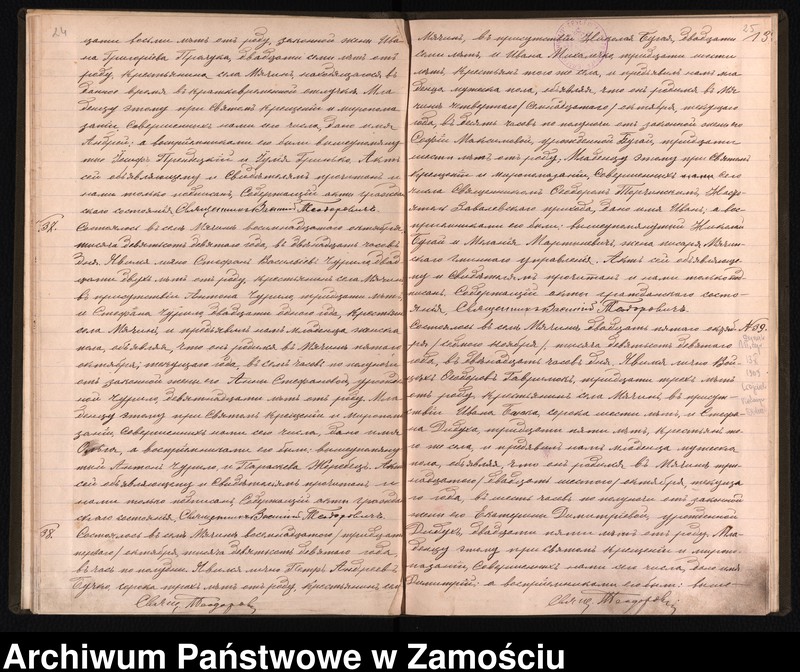 24
цати восьми лѣтъ отъ роду, законной жены Ива-
на Григорьева двадцати семи лѣтъ отъ
роду, крестьянина села Мячинъ, находящагося въ
данное время въ кратковременной отлучкѣ. Мла-
денцу этому при Святомъ Крещеніи и миропома-
заніи, совершенныхъ нами сего числа, дано имя
Андрей; а воспріемниками его были вышеупомяну-
тый и Юлія Актъ
сей объявляющему и свидѣтелямъ прочитанъ и
нами только подписанъ. Содержащій акты граждан-
скаго состоянія, Священникъ Теодоровичъ.
37.
Состоялось въ селѣ Мячинъ восемнадцатаго октября,
тысяча девятьсотъ девятаго года, въ двѣнадцать часовъ
дня. Явился лично Стефанъ Васильевъ Чурило, двад-
цати двухъ лѣтъ отъ роду, крестьянинъ села Мячинъ
въ присутствіи Антона Чурило, тридцати лѣтъ
и Стефана Чурило, двадцати одного года, крестьянъ
села Мячинъ, и предъявилъ намъ младенца женска
пола, объявляя, что онъ родился въ Мячинъ пятаго
октября, текущаго года, въ семь часовъ по полуночи
отъ законной жены его Анны Стефановой, урожден-
ной Чурило, девятнадцати лѣтъ отъ роду. Мла-
денцу этому при Святомъ Крещеніи и миропома-
заніи, совершенныхъ нами сего числа, дано имя
Ольга, а воспріемниками его были: вышеупомяну-
тый Антонъ Чурило и Параскева Жеребецъ. Актъ
сей объявляющему и свидѣтелямъ прочитанъ и
нами только подписанъ. Содержащій акты граждан-
скаго состоянія, Священникъ Теодоровичъ.
38.
Состоялось въ селѣ Мячинъ восемнадцатаго/тридцать
перваго/октября, тысяча девятьсотъ девятаго года,
въ часъ по полудни. Явился лично Петръ Андреевъ
сорока трехъ лѣтъ отъ роду, крестьянинъ села
Свящ. Теодоровичъ
25
13.
Мячинъ, въ присутствіи Николая Бугая, двадцати
семи лѣтъ, и Ивана тридцати шести
лѣтъ, крестьянъ того же села, и предъявилъ намъ мла-
денца мужска пола, объявляя, что онъ родился въ Мя-
чинъ четвертаго/семнадцатаго/октября, текущаго
года, въ девять часовъ по полуночи отъ законной жены его
Софіи Максимовой, урожденной Бугай, тридцати
шести лѣтъ отъ роду. Младенцу этому при Святомъ
Крещеніи и миропомазаніи, совершенныхъ сего
числа Священникомъ Ѳеодоромъ
прихода, дано имя Иванъ; а вос-
пріемниками его были: вышеупомянутый Николай
Бугай и Меланія Мартиневичъ, жена писаря Мячин-
скаго гминнаго управленія. Актъ сей объявляюще-
му и свидѣтелямъ прочитанъ и нами только под-
писанъ. Содержащій акты гражданскаго состо-
янія, Священникъ Теодоровичъ.
№39.
Состоялось въ селѣ Мячинъ двадцать пятаго октяб-
ря/седьмаго ноября/, тысяча девятьсотъ девятаго
года, въ двѣнадцать часовъ дня. Явился лично Вой-
цѣхъ Ѳеодоровъ Гаврилюкъ, тридцати трехъ лѣтъ
отъ роду, крестьянинъ села Мячинъ, въ присут-
ствіи Ивана сорока шести лѣтъ, и Стефа-
на Дибука, тридцати пяти лѣтъ, крестьянъ то-
го же села, и предъявилъ намъ младенца мужска
пола, объявляя, что онъ родился въ Мячинъ три-
надцатаго/двадцать шестаго/октября, текуща-
го года, въ шесть часовъ по полуночи отъ законной
жены его Екатерины Димитріевой, урожденной
Дибукъ, двадцати пяти лѣтъ отъ роду. Мла-
денцу этому при Святомъ Крещеніи и миропо-
мазаніи, совершенныхъ нами сего числа, дано имя
Димитрій; а воспріемниками его были: выше-
Свящ. Теодоровичъ
Archiwum Państwowe w Zamościu